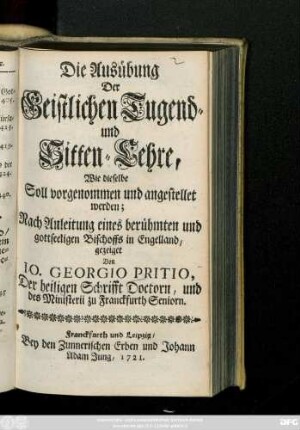 2
Die Ausübung
Der
Geistlichen Tugend-
und
Sitten-Lehre,
Wie dieselbe
Soll vorgenommen und angestellet
werden;
Nach Anleitung eines berühmten und
gottseeligen Bischoffs in Engelland/
gezeiget
Von
JO. GEORGIO PRITIO,
Der heiligen Schrifft Doctorn, und
des Ministerii zu Franckfurth Seniorn.
Franckfurth und Leipzig/
Bey den Zunnerischen Erben und Johann
Adam Jung, 1721.